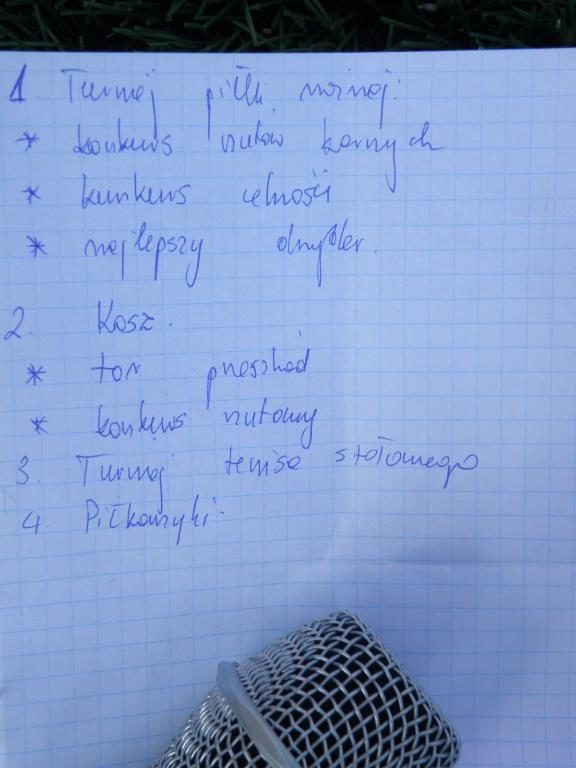 1. Turniej piłki nożnej:
* konkurs rzutów karnych
* kunkurs celności
* najlepszy drybler.
2. Kosz.
* tor przeszkód
* konkurs rzutowy
3. Turniej tenisa stołowego
4. Piłkarzyki.